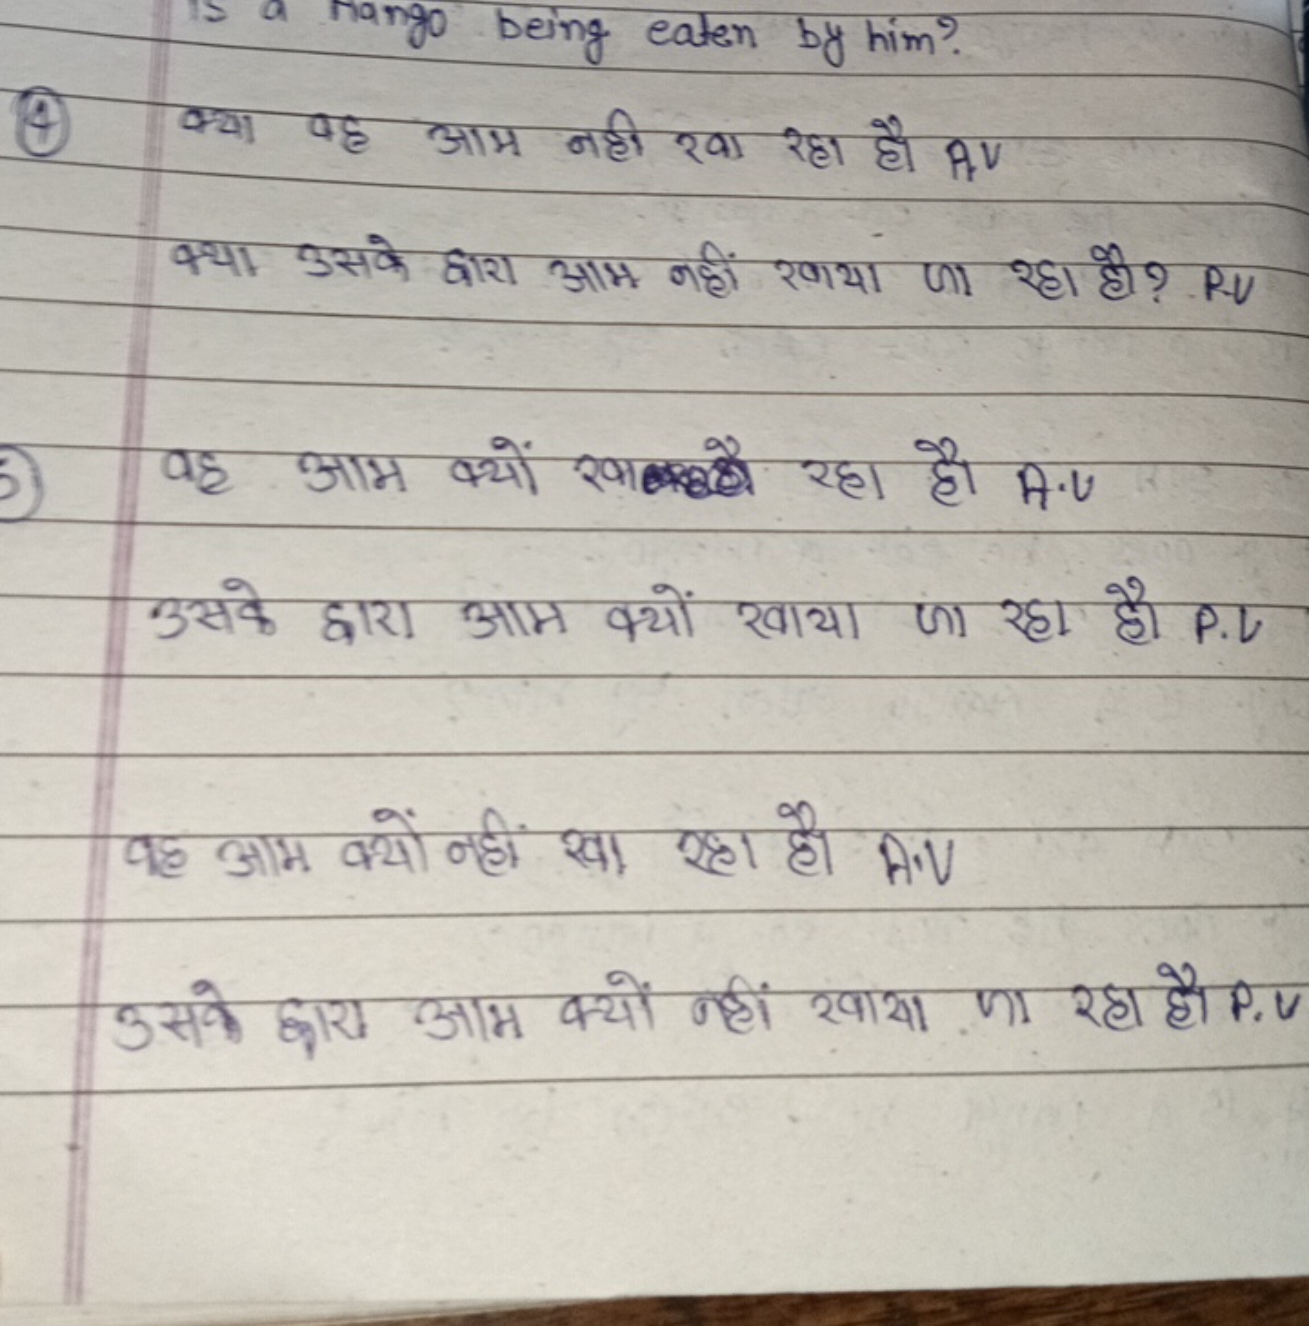 is a Mango being eaten by him?
④ क्या वह आम नही खा रहा है A V
क्या उसके द्वारा आम नहीं खाया जा रहा है? P.V
5) वह आम क्यों खा रहा है A.V
उसके द्वारा आम क्यों खाया जा रहा है P.V
वह आम क्यों नहीं खा रहा है A.V
उसके द्वारा आम क्यों नहीं खाया जा रहा है P.V